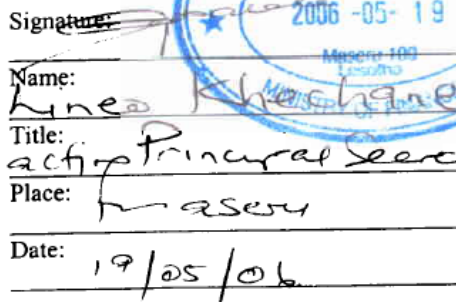 Signature:
2006 -05- 19
Maseru 100
Lesotho
Name:
Lineo Khechane
Title:
acting Principal Secre
Place: Maseru
Date: 19/05/06